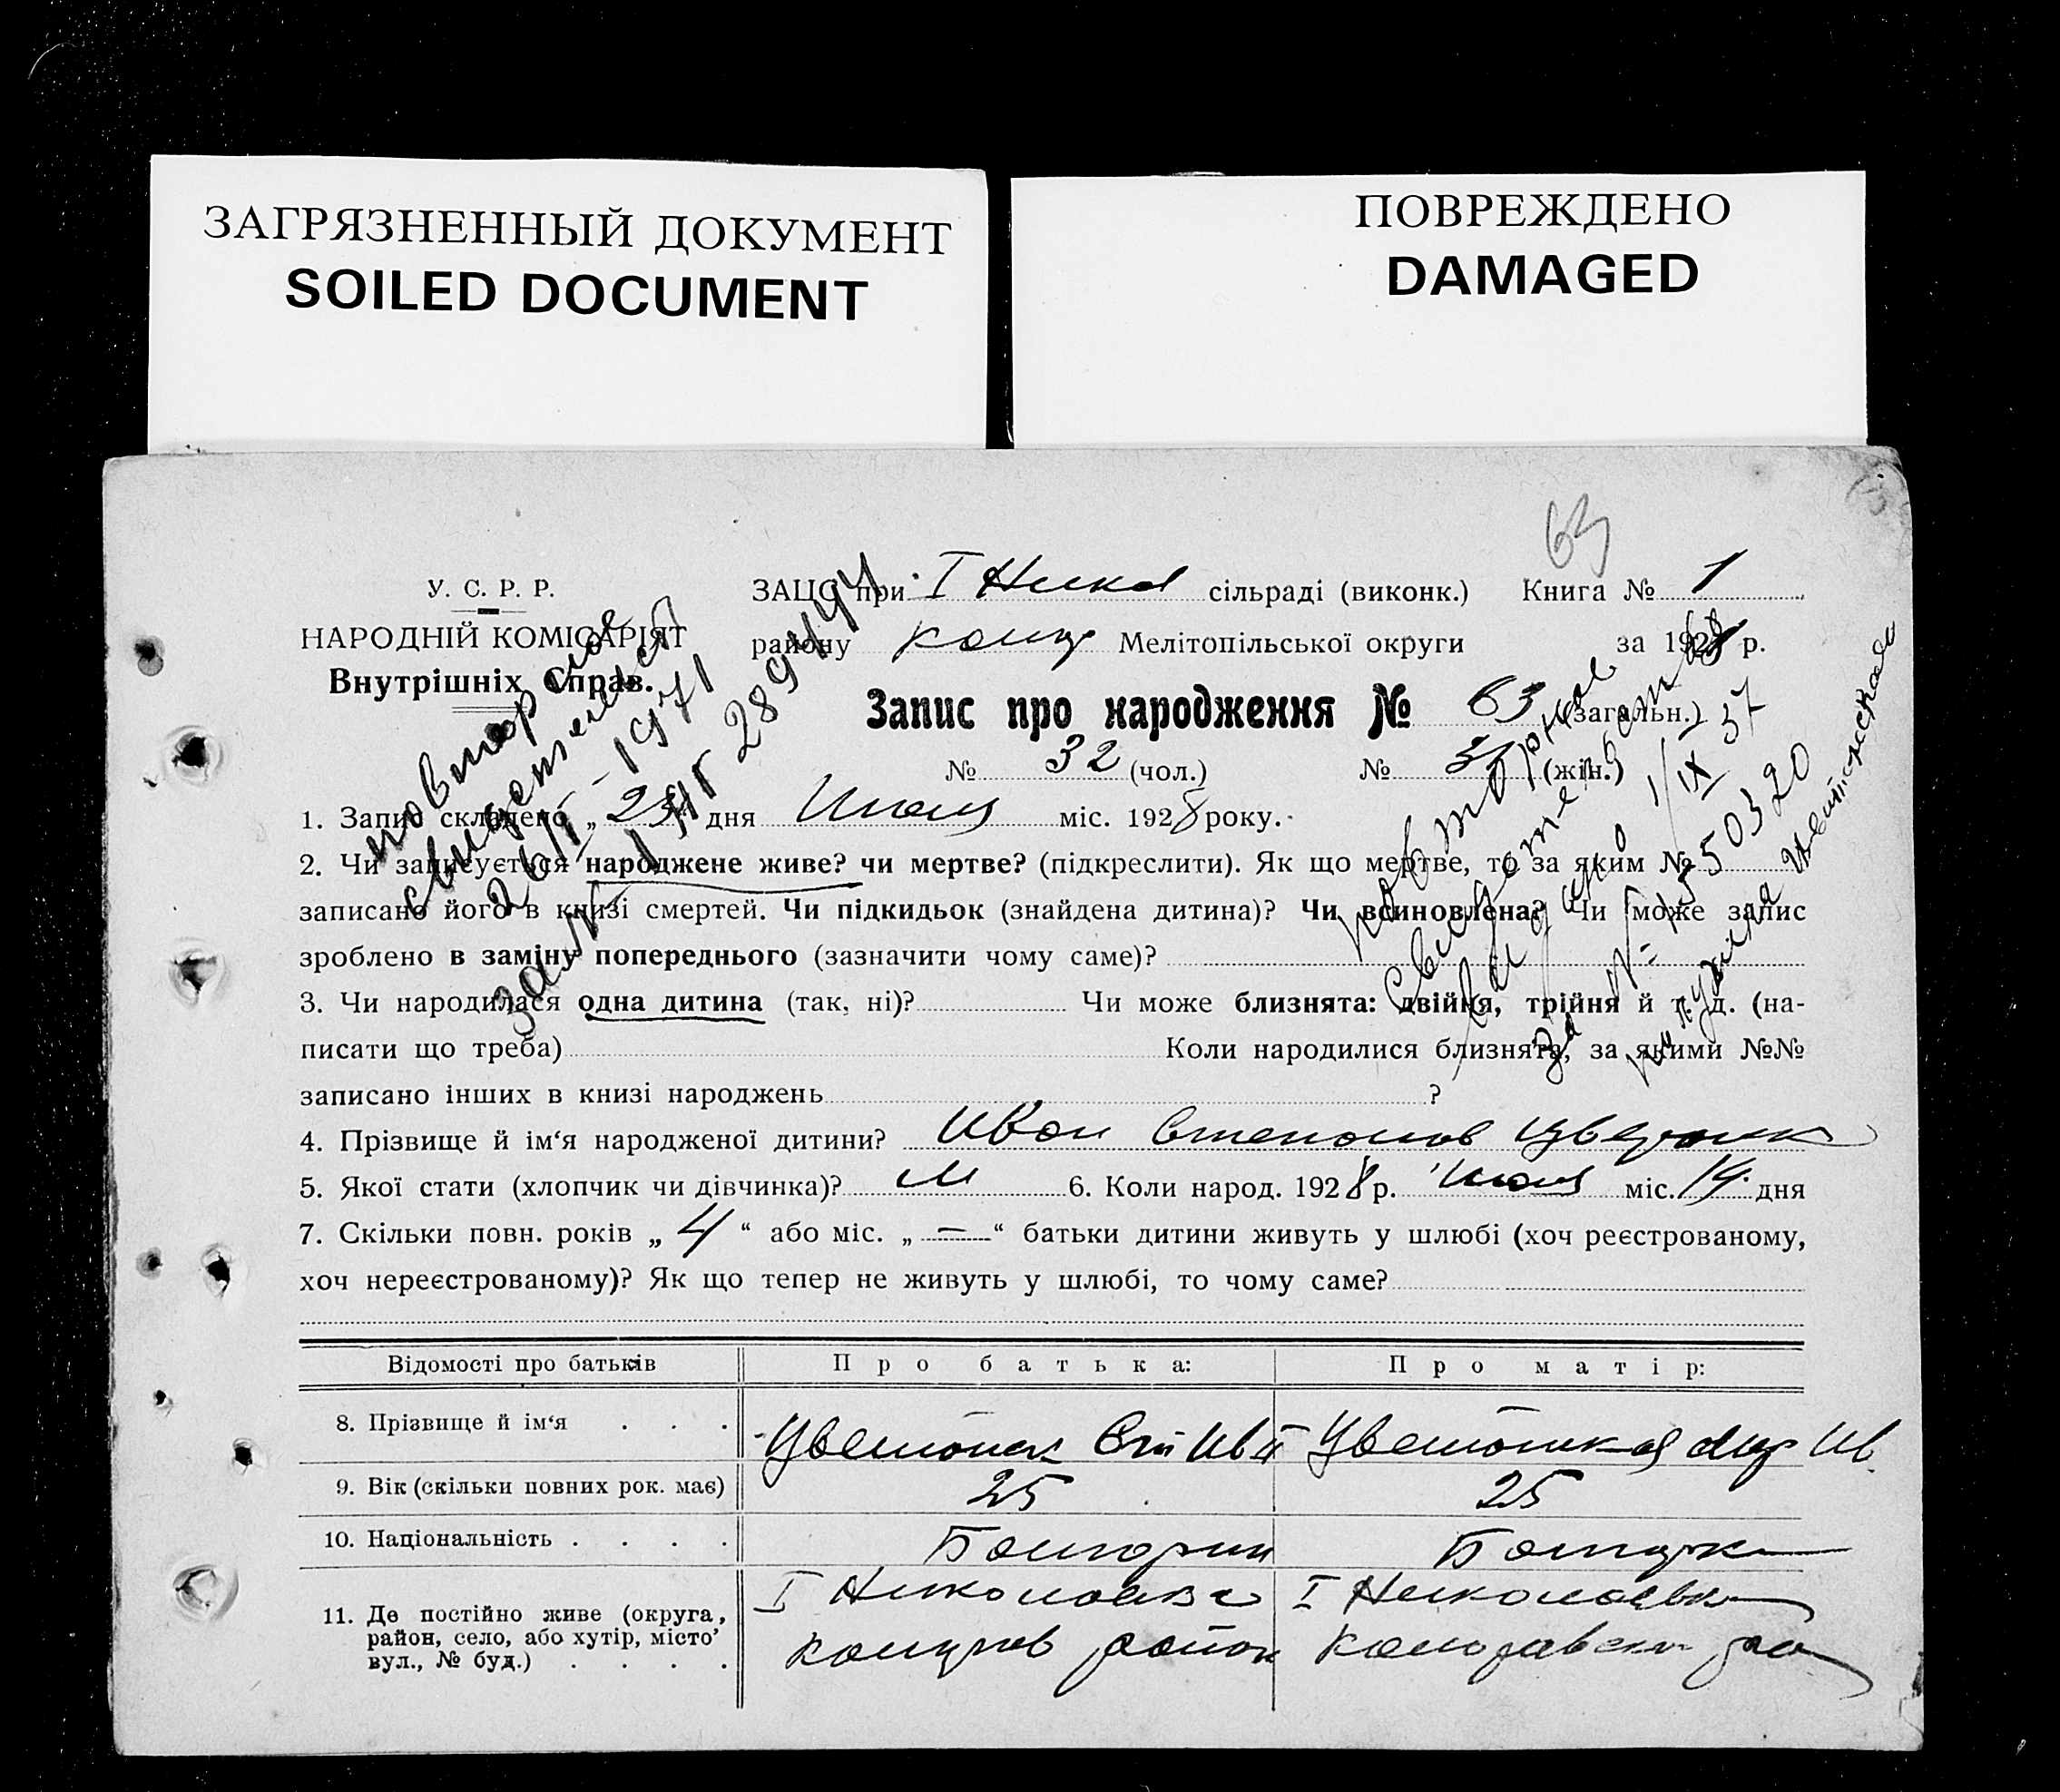 ЗАГРЯЗНЕННЫЙ ДОКУМЕНТ
SOILED DOCUMENT
ПОВРЕЖДЕНО
DAMAGED
63
У. С. Р. Р.
НАРОДНІЙ КОМІСАРІЯТ
Внутрішніх Справ.
ЗАЦС при І Нико сільраді (виконк.) Книга № 1
району Мелітопільської округи за 1928 р.
Запис про народження № 63 (загальн.)
№ 32 (чол.) № 31 (жін.)
повторное
свидетельст
26/II - 1971
289444
повторное
свидетельство
выдано 1/IX 37
за №
1. Запис складено „23" дня Июля міс. 1928 року.
2. Чи записується народжене живе? чи мертве? (підкреслити). Як що мертве, то за яким №
записано його в книзі смертей. Чи підкидьок (знайдена дитина)? Чи всиновлена? Чи може запис
зроблено в заміну попереднього (зазначити чому саме)?
3. Чи народилася одна дитина (так, ні)? Чи може близнята: двійня, трійня й т. д. (на-
писати що треба) Коли народилися близнята, за якими №№
записано інших в книзі народжень ?
4. Прізвище й ім'я народженої дитини? Иван Степанов
5. Якої стати (хлопчик чи дівчинка)? М 6. Коли народ. 1928 р. Июля міс. 19 дня
7. Скільки повн. років „4“ або міс. „—“ батьки дитини живуть у шлюбі (хоч реєстрованому,
хоч нереєстрованому)? Як що тепер не живуть у шлюбі, то чому саме?
Відомості про батьків Про батька: Про матір:
8. Прізвище й ім'я . . .
9. Вік (скільки повних рок. має) 25 25
10. Національність . . . . Болгарин Болгарка
11. Де постійно живе (округа, І Николаевка І Николаевка
район, село, або хутір, місто’ район
вул., № буд.) . . . .